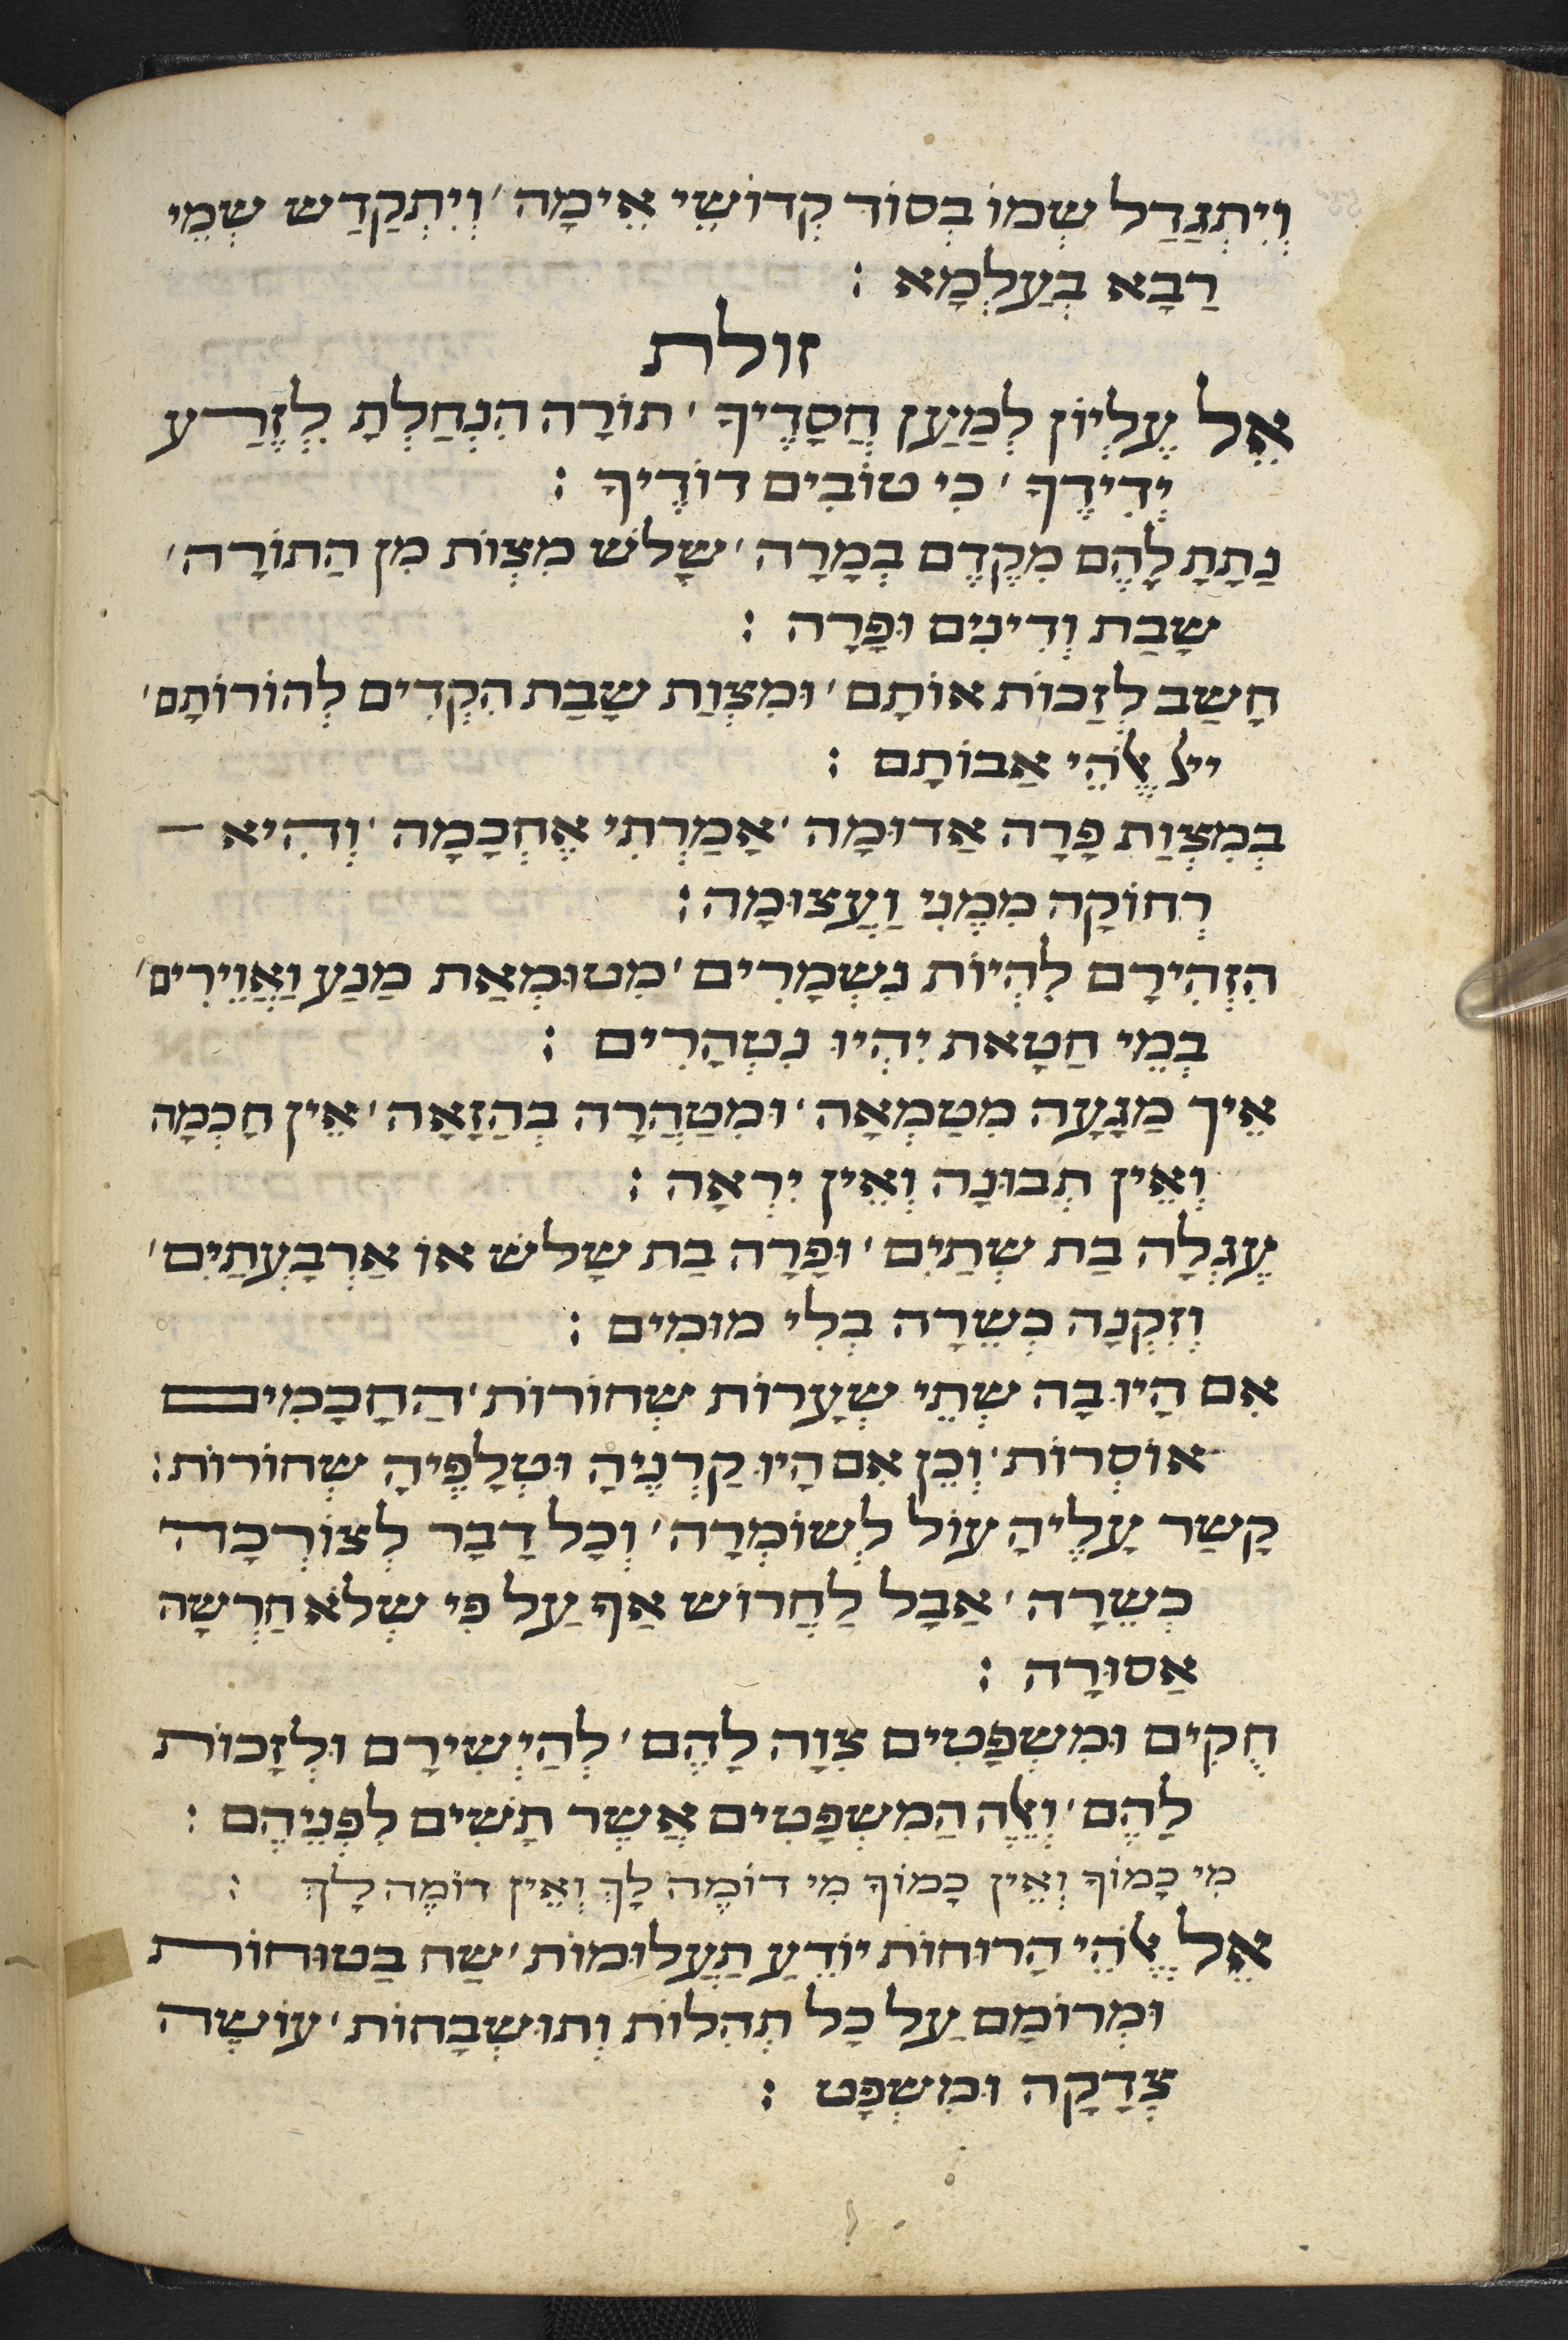 וְיִתְגַדַל שְמוֹ בְסוֹד קְדוֹשֵי אֵימָה׳ וְיִתְקַדַש שְמֵי
רַבָא בְעַלְמָא :
זולת
אֵל עֶלְיוֹן לְמַעַן חֲסָדֶיךָ ׳ תוֹרָה הִנְחַלְתָ לְזֶרַע
יְדִידֶךָ ׳ כִי טוֹבִים דוֹדֶיךָ :
נַתָתָ לָהֶם מִקֶדֶם בְמָרָה ׳ שָלֹש מִצְוֹת מִן הַתוֹרָה ׳
שָבַת וְדִינִים וּפָרָה :
חָשַב לְזַכוֹת אוֹתָם ׳ וּמִצְוַת שָבַת הִקְדִים לְהוֹרוֹתָם ׳
ייל אֱלֹהֵי אַבוֹתָם :
בְמִצְוַת פָרָה אַדוּמָה ׳ אָמַרְתִי אֶחְכָמָה ׳ וְהִיא
רְחוֹקָה מִמֶנִי וַעֲצוּמָה :
הִזְהִירָם לִהְיוֹת נִשְמָרִים ׳ מִטוּמְאַת מַגַע וַאֲוֵירִים ׳
בְמֵי חַטָאת יִהְיוּ נִטְהָרִים :
אֵיךְ מַגָעָה מְטַמְאָה ׳ וּמְטַהֲרָה בְהַזָאָה ׳ אֵין חָכְמָה
וְאֵין תְבוּנָה וְאֵין יִרְאָה :
עֶגְלָה בַת שְתַיִם ׳ וּפָרָה בַת שָלֹש אוֹ אַרְבָעְתַיִם ׳
וְזִקְנָה כְשֵרָה בְלִי מוּמִים :
אִם הָיוּ בָה שְתֵי שְעָרוֹת שְחוֹרוֹת ׳ הַחָכָמִים
אוֹסְרוֹת ׳ וְכֵן אִם הָיוּ קַרְנֶיהָ וּטְלָפֶיהָ שְחוֹרוֹת :
קָשַר עָלֶיהָ עוֹל לְשוֹמְרָה ׳ וְכָל דָבָר לְצוֹרְכָה
כְשֵרָה ׳ אַבָל לַחֲרוֹש אַף עַל פִי שֶלֹא חַרְשָה
אַסוּרָה :
חֻקִים וּמִשְפָטִים צִוָה לָהֶם ׳ לְהַיְשִירָם וּלְזָכוֹת
לָהֶם ׳ וְאֵלֶה הַמִשְפָטִים אֲשֶר תָשִׂים לִפְנֵיהֶם :
מִי כָמוֹךָ וְאֵין כָמוֹךָ מִי דוֹמֶה לָךְ וְאֵין דוֹמֶה לָךְ :
אֵל אֱלֹהֵי הָרוּחוֹת יוֹדֵעַ תַעֲלוּמוֹת ׳ שַת בַטוּחוֹת
וּמְרוֹמָם עַל כָל תְהִלוֹת וְתוּשְבָחוֹת ׳ עוֹשֶה
צְדָקָה וּמִשְפָט :